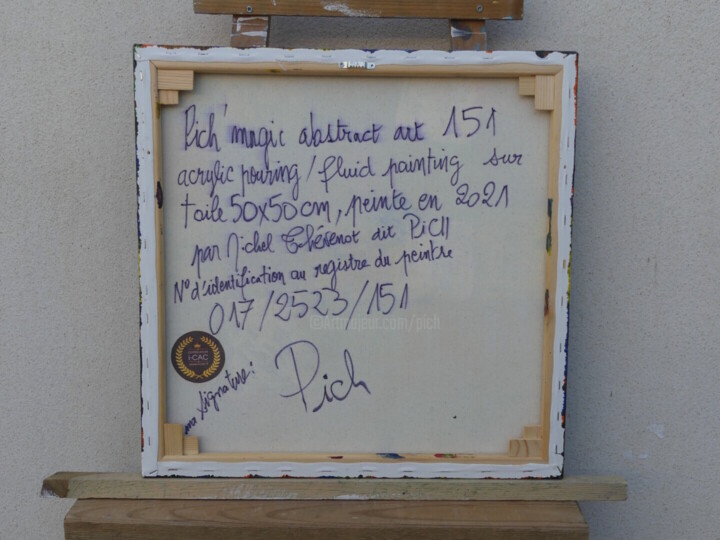 Pich'magic abstract art 151
acrylic pouring / fluid painting sur
toile 50x50cm, peinte en 2021
par Michel Thévenot dit PiCH
N° d'identification au registre du peintre
017/2523/151
@Artmajeur.com/pich
i-CAC
ma signature:
Pich